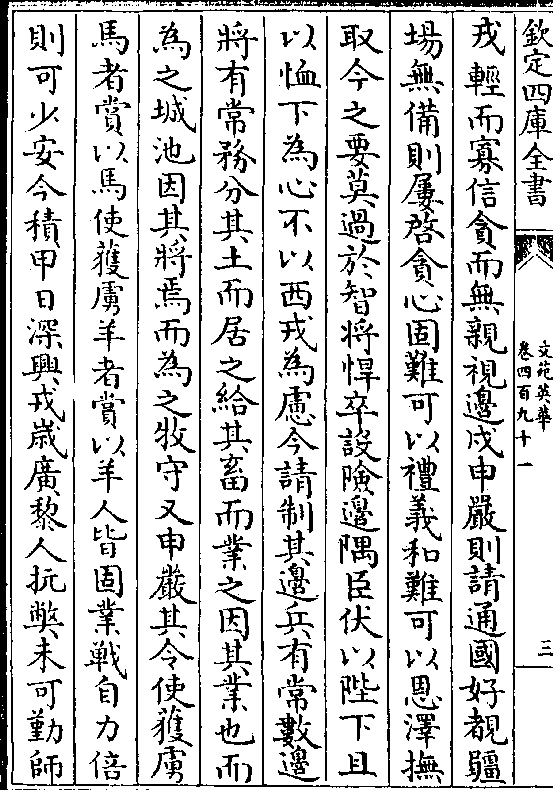 欽定四庫全書
文苑英華
卷四百九十一
三
戎輕而寡信貪而無親視邊戍申嚴則請通國好覩疆
場無備則屢啓貪心固難可以禮義和難可以恩澤撫
取今之要莫過於智將悍卒設險邊隅臣伏以陛下且
以恤下為心不以西戎為慮今請制其邊兵有常數邊
將有常務分其土而居之給其畜而業之因其業也而
為之城池因其將焉而為之牧守又申嚴其令使獲虜
馬者賞以馬使獲虜羊者賞以羊人皆固業戰自力倍
則可少安今積甲日深興戎嵗廣黎人抏弊未可勤師